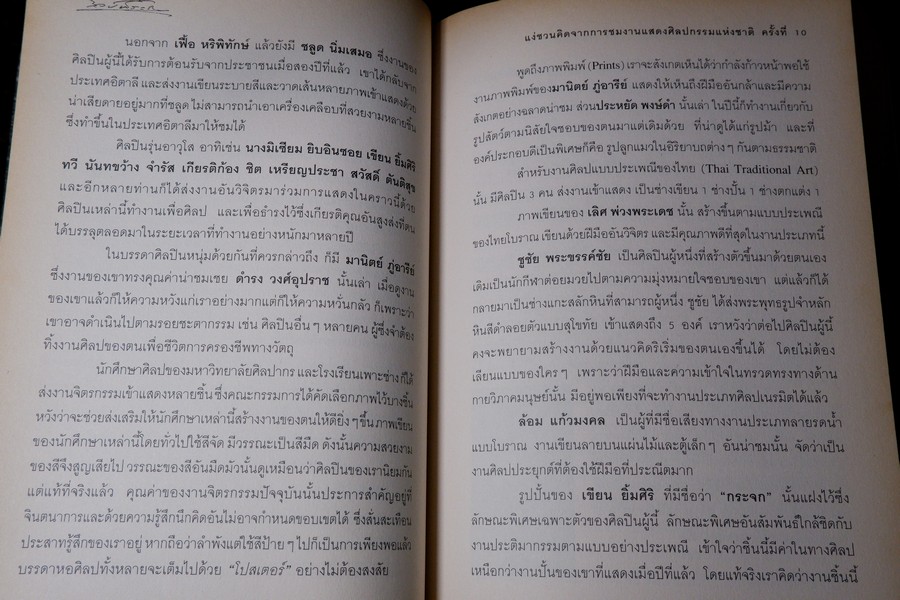 นอกจาก เฟื้อ หริพิทักษ์ แล้วยังมี ชลูด นิ่มเสมอ ซึ่งงานของ
ศิลปินผู้นี้ได้รับการต้อนรับจากประชาชนเมื่อสองปีที่แล้ว เขาได้กลับจาก
ประเทศอิตาลี และส่งงานเขียนระบายสีและวาดเส้นหลายภาพเข้าแสดงด้วย
น่าเสียดายอยู่มากที่ชลูด ไม่สามารถนำเอาเครื่องเคลือบที่สวยงามหลายชิ้น
ซึ่งทำขึ้นในประเทศอิตาลีมาให้ชมได้
ศิลปินรุ่นอาวุโส อาทิเช่น นางมิเซียม ยิบอินซอย เขียน ยิ้มศิริ
ทวี นันทขว้าง จำรัส เกียรติก้อง ชิต เหรียญประชา สวัสดิ์ ตันติสุข
และอีกหลายท่านก็ได้ส่งงานอันวิจิตรมาร่วมการแสดงในคราวนี้ด้วย
ศิลปินเหล่านี้ทำงานเพื่อศิลป และเพื่อธำรงไว้ซึ่งเกียรติคุณอันสูงส่งที่ตน
ได้บรรลุตลอดมาในระยะเวลาที่ทำงานอย่างหนักมาหลายปี
ในบรรดาศิลปินหนุ่มด้วยกันที่ควรกล่าวถึง ก็มี มานิตย์ ภู่อารีย์
ซึ่งงานของเขาทรงคุณค่าน่าชมเชย ดำรง วงศ์อุปราช นั้นเล่า เมื่อดูงาน
ของเขาแล้วก็ให้ความหวังแก่เราอย่างมากแต่ก็ให้ความหวั่นกลัว ก็เพราะว่า
เขาอาจดำเนินไปตามรอยชะตากรรม เช่น ศิลปินอื่นๆ หลายคน ผู้ซึ่งจำต้อง
ทิ้งงานศิลปของตนเพื่อชีวิตการครองชีพทางวัตถุ
นักศึกษาศิลปของมหาวิทยาลัยศิลปากร และโรงเรียนเพาะช่าง ก็ได้
ส่งงานจิตรกรรมเข้าแสดงหลายชิ้น ซึ่งคณะกรรมการได้คัดเลือกภาพไว้บางชิ้น
หวังว่าจะช่วยส่งเสริมให้นักศึกษาเหล่านี้สร้างงานของตนให้ดียิ่งๆ ขึ้น ภาพเขียน
ของนักศึกษาเหล่านี้โดยทั่วไปใช้สีจัด มีวรรณะเป็นสีมืด ดังนั้นความสวยงาม
ของสีจึงสูญเสียไป วรรณะของสีอันมืดมัวนั้นดูเหมือนว่าศิลปินของเรานิยมกัน
แต่แท้ที่จริงแล้ว คุณค่าของงานจิตรกรรมปัจจุบันนั้นประการสำคัญอยู่ที่
จินตนาการและด้วยความรู้สึกนึกคิดอันไม่อาจกำหนดขอบเขตได้ ซึ่งสั่นสะเทือน
ประสาทรู้สึกของเราอยู่ หากถือว่าลำพังแต่ใช้สีป้ายๆ ไปก็เป็นการเพียงพอแล้ว
บรรดาหอศิลปทั้งหลายจะเต็มไปด้วย “โปสเตอร์” อย่างไม่ต้องสงสัย
แง่ชวนคิดจากการชมงานแสดงศิลปกรรมแห่งชาติ ครั้งที่ 10
พูดถึงภาพพิมพ์ (Prints) เราจะสังเกตเห็นได้ว่ากำลังก้าวหน้าพอใช้
งานภาพพิมพ์ของมานิตย์ ภู่อารีย์ แสดงให้เห็นถึงฝีมืออันกล้าและมีความ
สังเกตอย่างฉลาดน่าชม ส่วนประหยัด พงษ์ดำ นั้นเล่า ในปีนี้ก็ทำงานเกี่ยวกับ
รูปสัตว์ตามนิสัยใจชอบของตนมาแต่เดิมด้วย ที่น่าดูได้แก่รูปม้า และที่
องค์ประกอบดีเป็นพิเศษก็คือ รูปลูกแมวในอิริยาบถต่างๆ กันตามธรรมชาติ
สำหรับงานศิลปแบบประเพณีของไทย (Thai Traditional Art)
นั้น มีศิลปิน 3 คน ส่งงานเข้าแสดง เป็นช่างเขียน 1 ช่างปั้น 1 ช่างตกแต่ง 1
ภาพเขียนของ เลิศ พ่วงพระเดช นั้น สร้างขึ้นตามแบบประเพณี
ของไทยโบราณ เขียนด้วยฝีมืออันวิจิตร และมีคุณภาพดีที่สุดในงานประเภทนี้
ชูชัย พระขรรค์ชัย เป็นศิลปินผู้หนึ่งที่สร้างตัวขึ้นมาด้วยตนเอง
เดิมเป็นนักกีฬาต่อยมวยไปตามความมุ่งหมายใจชอบของเขา แต่แล้วก็ได้
กลายมาเป็นช่างแกะสลักหินที่สามารถผู้หนึ่ง ชูชัย ได้ส่งพระพุทธรูปจำหลัก
หินสีดำลอยตัวแบบสุโขทัย เข้าแสดงถึง 5 องค์ เราหวังว่าต่อไปศิลปินผู้นี้
คงจะพยายามสร้างงานด้วยแนวคิดริเริ่มของตนเองขึ้นได้ โดยไม่ต้อง
เลียนแบบของใครๆ เพราะว่าฝีมือและความเข้าใจในทรวดทรงทางด้าน
กายวิภาคมนุษย์นั้น มีอยู่พอเพียงที่จะทำงานประเภทศิลปเนรมิตได้แล้ว
ล้อม แก้วมงคล เป็นผู้ที่มีชื่อเสียงทางงานประเภทลายรดน้ำ
แบบโบราณ งานเขียนลายบนแผ่นไม้และตู้เล็กๆ อันน่าชมนั้น จัดว่าเป็น
งานศิลปประยุกต์ที่ต้องใช้ฝีมือที่ประณีตมาก
รูปปั้นของ เขียน ยิ้มศิริ ที่มีชื่อว่า “กระจก” นั้นแฝงไว้ซึ่ง
ลักษณะพิเศษเฉพาะตัวของศิลปินผู้นี้ ลักษณะพิเศษอันสัมพันธ์ใกล้ชิดกับ
งานประติมากรรมตามแบบอย่างประเพณี เข้าใจว่าชิ้นนี้มีค่าในทางศิลป
เหนือกว่างานปั้นของเขาที่แสดงเมื่อปีที่แล้ว โดยแท้จริงเราคิดว่างานชิ้นนี้